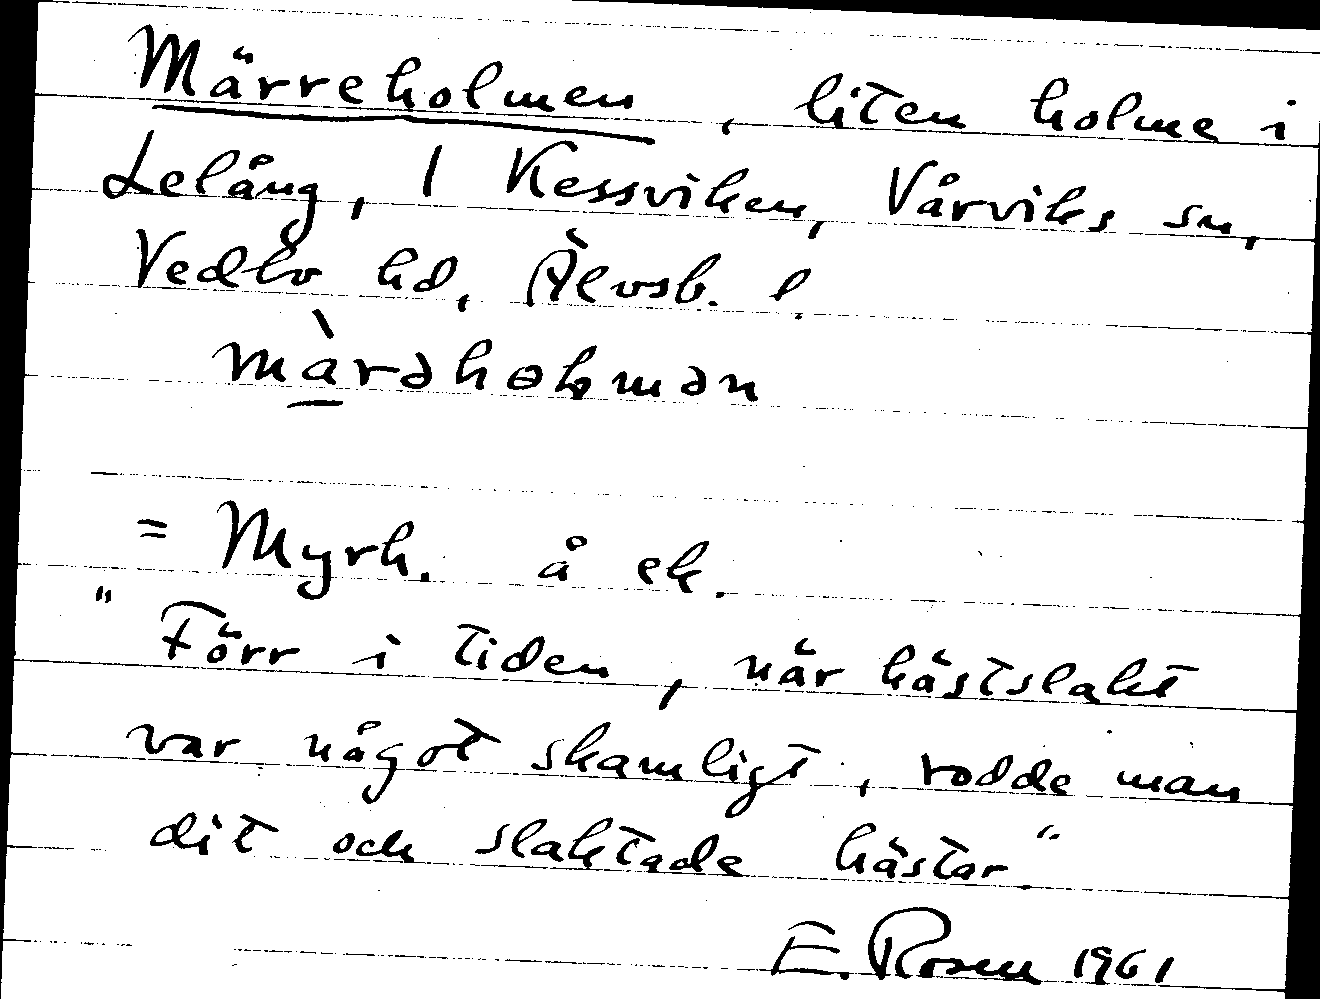 Märreholmen, liten holme i
Lelång, I Kessviken, Vårviks sn,
Vedbo hd, Älvsb. l.
= Myrh. å ek.
"Förr i tiden, när hästslakt
var något skamligt, rodde man
dit och slaktade hästar."
E. Rosen 1961